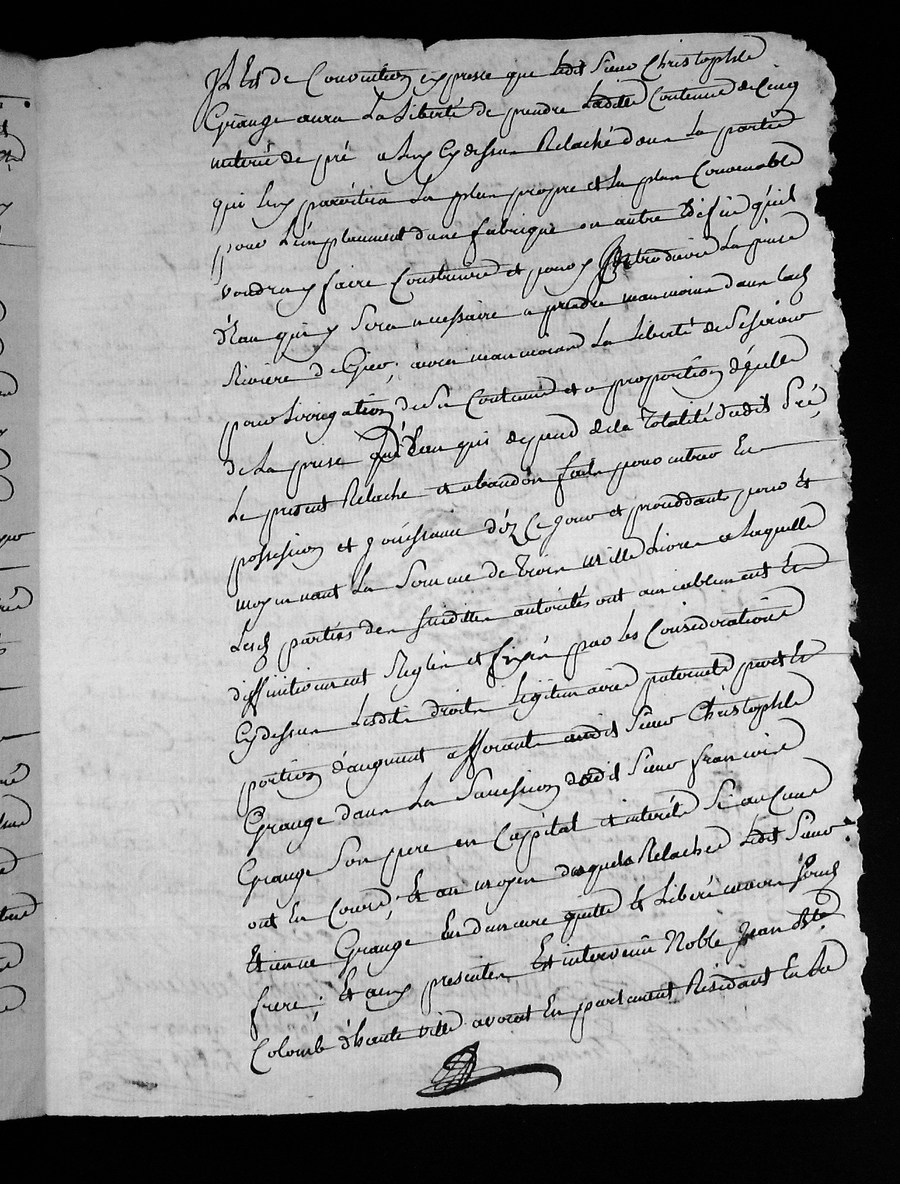 Il Est de Convention expresse que Ledit Sieur Christophle
Grange aura La Liberté de prendre Ladite Contenue de Cinq
meterée de pré a luy Cydessus Relaché dans La partie
qui Luy paroitra La plus propre et La plus Convenable
pour L'emplacement d'une fabrique ou autre Edifice qu'il
voudra y faire Construire et pour y Introduire La prise
d'Eau qui y Sera necessaire a prendre neanmoins dans lad
Riviere de Gier; aura neanmoins La Liberté de Se servir
pour L'irrigation de Sa Contenue et a proportion d'jcelle
de La prise d'Eau qui depend de la Totalité dudit Pré,
Le present Relache et abandon fait pour entrer En
possession et jouissance d'ez Ce jour et proceddant pour et
moyennant La Somme de Trois mille Livres a Laquelle
Lesd parties de Leursdittes autorités ont amicablement Et
diffinitivement Reglé et fixé par Les Considerations
Cydessus Lesdits droits Legitimaires paternels part Et
portion d'augment afferante audit Sieur Christophle
Grange dans La Succession dudit Sieur françois
Grange Son pere en Capital et interêts Si aucuns
ont Eu Cours, Et au moyen duquel Relache Ledit Sieur
Etienne Grange En demeure quitte et Libéré envers sond
frere; Et aux presentes Est intervenu Noble Jean Bte
Colomb d'hauteville avocat En parlement Résidant En Sa